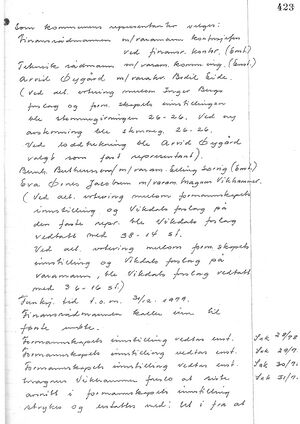 423
Som kommunens representanter velges:
Finansrådmannen m/varamann kontorsjefen
ved finansr. kontor. (Enst.)
Teknisk rådmann m/varam. komm.ing. (Enst.)
Arvid Øygård m/varakr. Bodil Eide.
(Ved alt. votering mellom Inger Bergs
forslag og form.skapets innstillingen
ble stemmegivningen 26-26. Ved ny
avstemning ble stemmeg. 26-26.
Ved loddtrekning ble Arvid Øygård
valgt som fast representant).
m/varam. Elling (Enst.)
Eva m/varam. Magnus Vikhammer.
(Ved alt. votering mellom formannskapets
innstilling og Vikdals forslag på
den faste repr. ble Vikdals forslag
vedtatt med 38-14 st.
Ved alt. votering mellom form.skapets
innstilling og Vikdals forslag på
varamann, ble Vikdals forslag vedtatt
med 36-16 st.)
Funksj. tid t.o.m. 31/12.1979.
Finansrådmannen kaller inn til
første møte.
Formannskapets innstilling vedtas enst. Sak 28/78
Formannskapets innstilling vedtas enst. Sak 29/7
Formannskapets innstilling vedtas enst. Sak 30/7
Magnus Vikhammer foreslo at siste Sak 31/7
avsnitt i formannskapets innstilling
strykes og erstattes med: Let i fra at